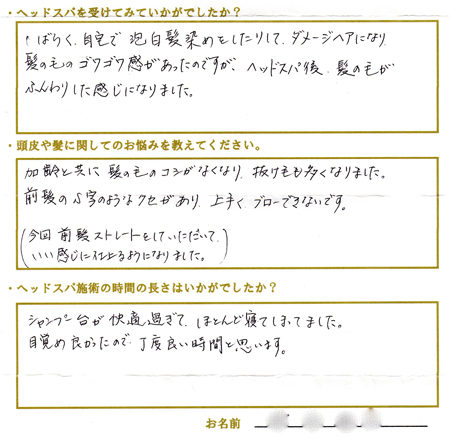 ・ヘッドスパを受けてみていかがでしたか？
しばらく、自宅で泡白髪染めをしたりして、ダメージヘアになり
髪の毛のゴワゴワ感があったのですが、ヘッドスパ後、髪の毛が
ふんわりした感じになりました。
・頭皮や髪に関してのお悩みを教えてください。
加齢と共に髪の毛のコシがなくなり、抜け毛も多くなりました。
前髪のS字のようなクセがあり、上手くブローできないです。
(今回前髪ストレートをしていただいて、
いい感じに仕上るようになりました。)
・ヘッドスパ施術の時間の長さはいかがでしたか？
シャンプー台が快適過ぎて、ほとんど寝てしまってました。
目覚め良かったので丁度良い時間と思います。
お名前